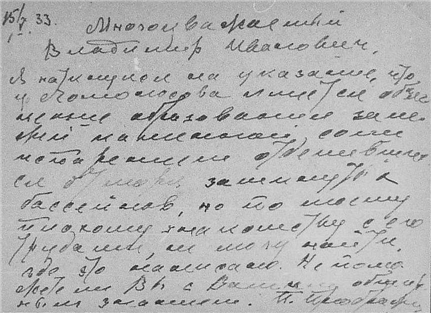 15/I. 33.
Многоуважаемый
Владимир Иванович,
Я наткнулся на указание, что
у Ломоносова имеется объяс
нение образования зале
жей каменной соли
испарением отделивших
ся от моря замкнутых
бассейнов, но по моему
плохому знакомству с его
трудами, не могу найти,
где это написано. Не помо
жете ли Вы с Вашим обшир
ным знанием. П.